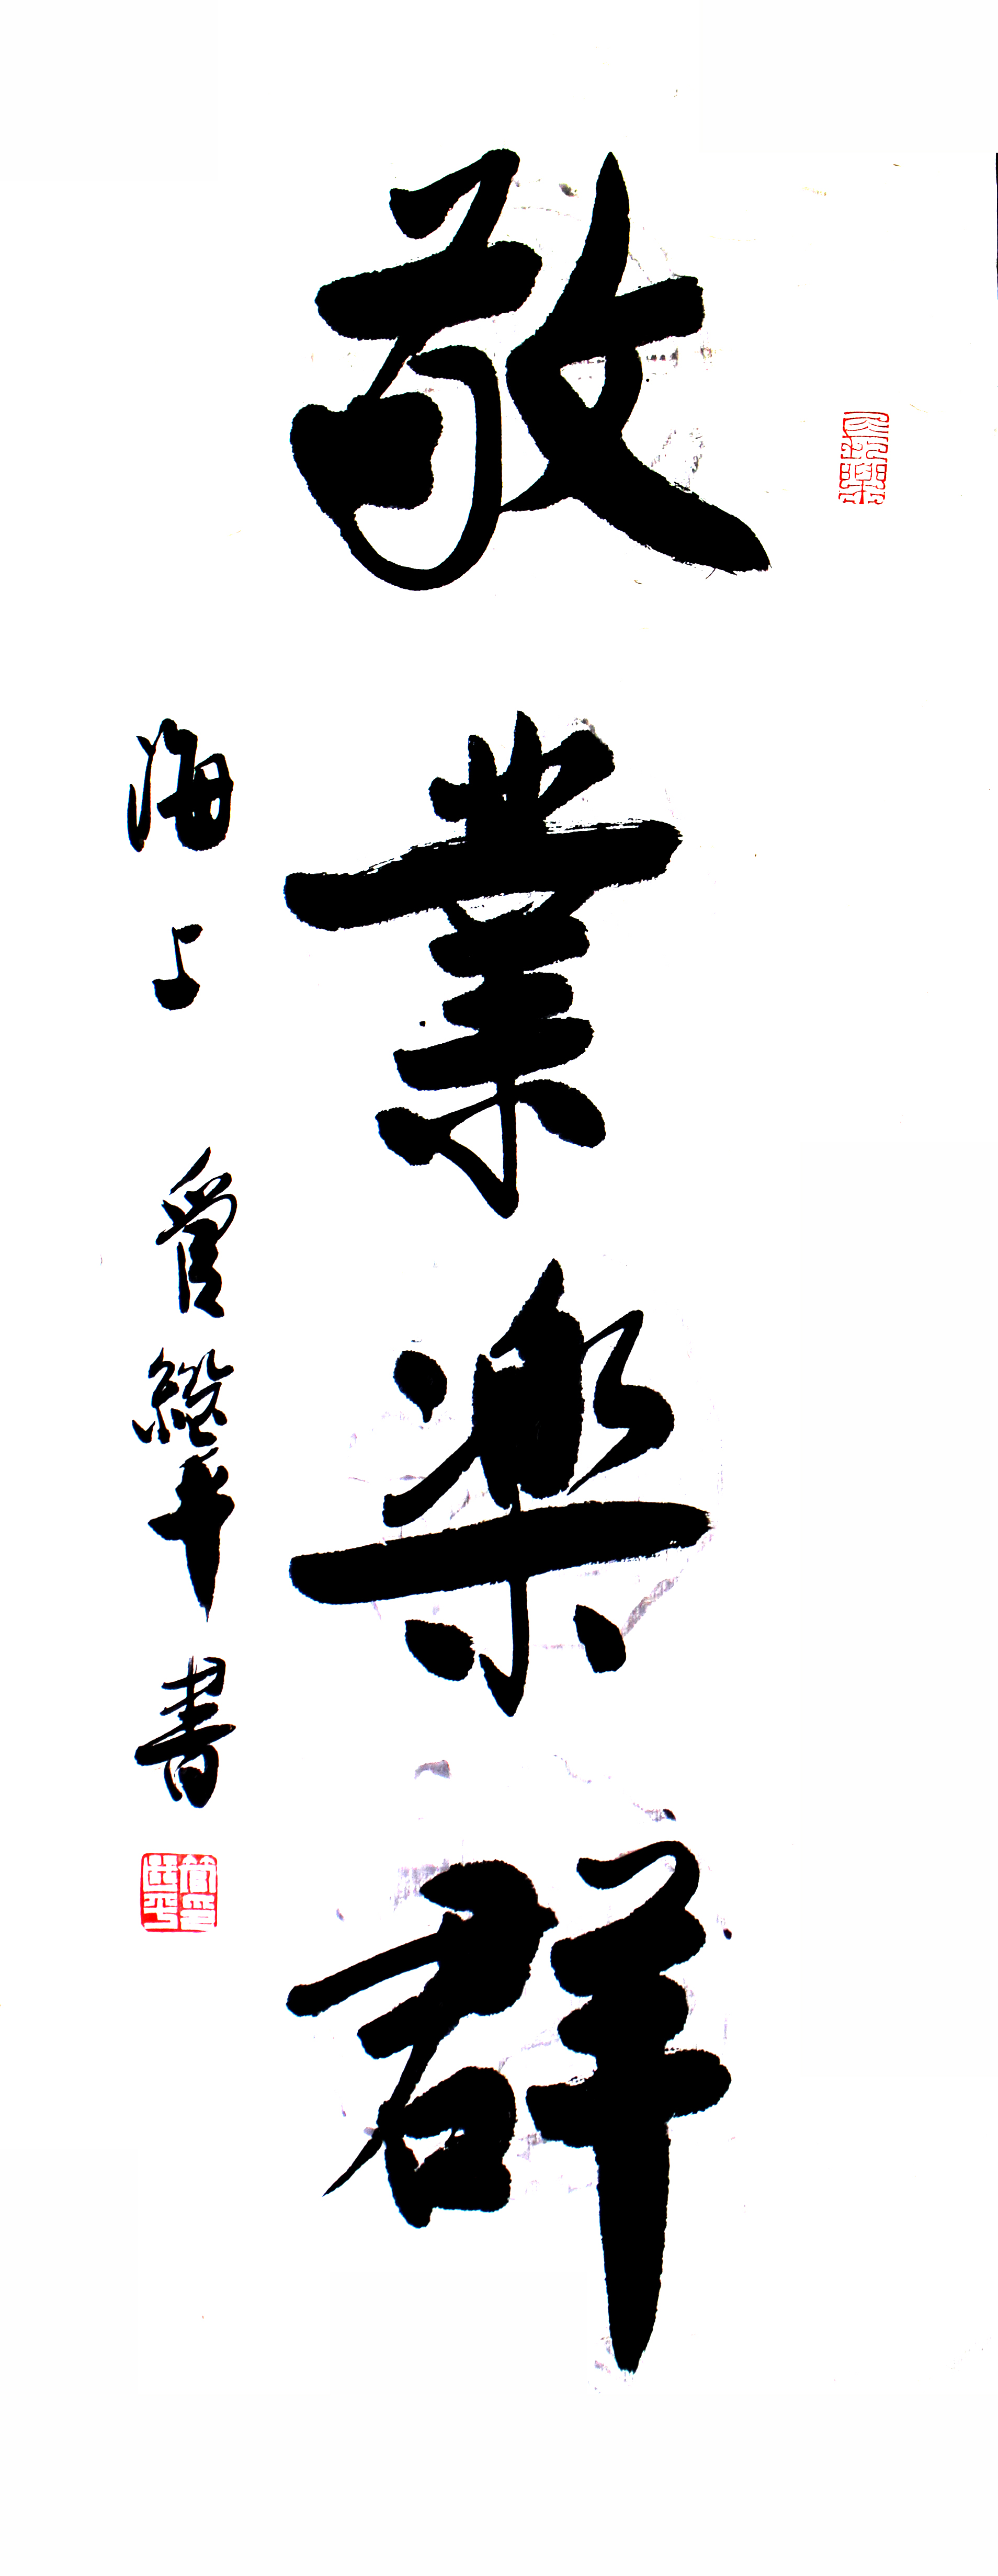 敬業楽群
海上 管繼平書